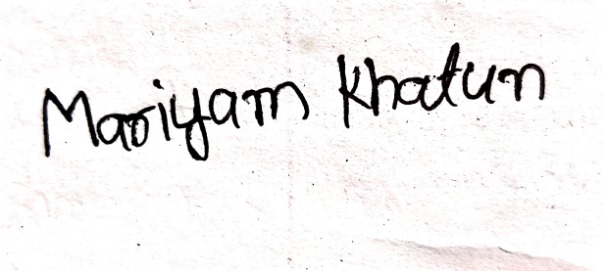 Mariyam Khatun